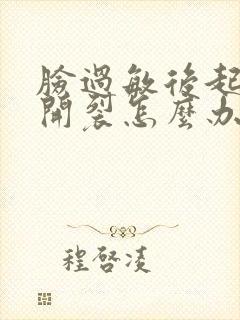 臉過敏後起
開裂怎麼办
程啓凌